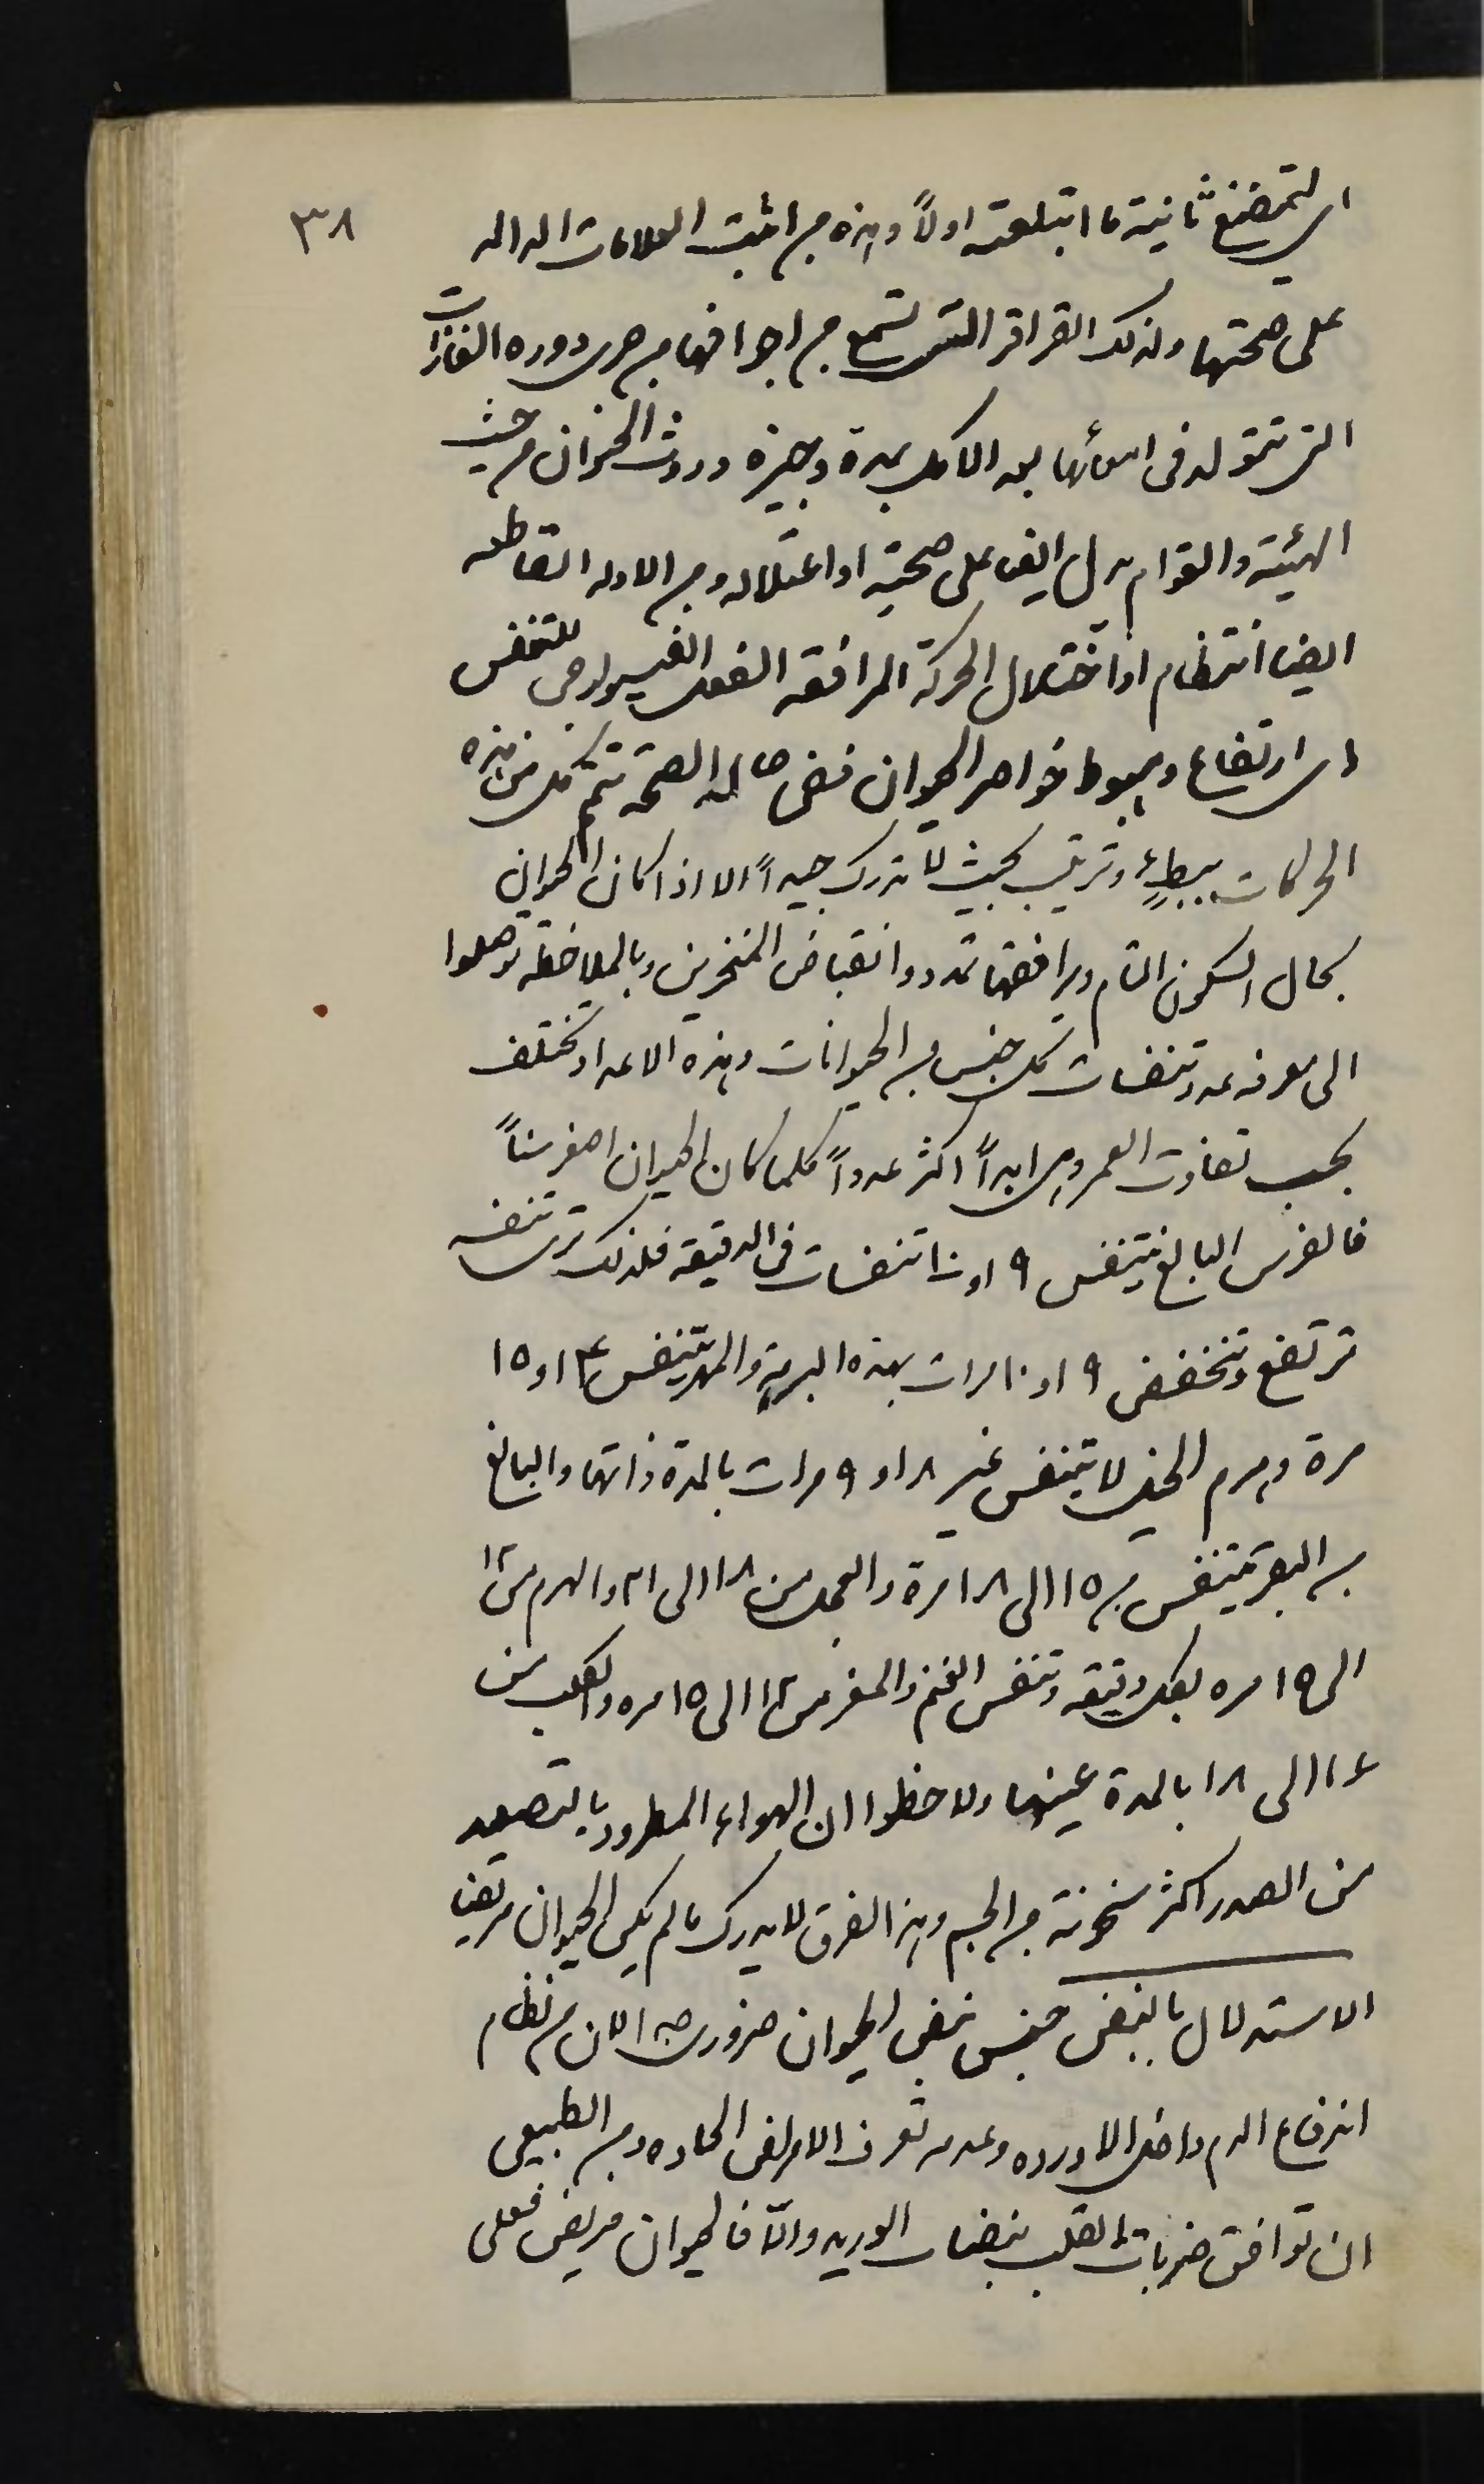 ٣٨
اي لتمضغ ثانية ما ابتلعته اولاً وهذه من اثبت العلامات الداله
على صحتها وكذلك القراقر التي تسمع من اجوافها من جرى دوره الغازات
التي تتولد في امعائها بعد الاكل بمدة وجيزه وروث الحيوان من حيث
الهيئة والقوام يدل ايضا على صحته او اعتلاله ومن الادله القاطعه
ايضا انتظام او اختلال الحركة المرافقه الفعل الفيسيولوجي للتنفس
اي ارتفاع وهبوط خواصر الحيوان ففي حاله الصحة تتم كل من هذه
الحركات ببطءٍ وترتيب بحيث لا تدرك جيداً الا اذا كان الحيوان
بحال السكون التام ويرافقها تمدد وانقباض المنخرين وبالملاحظه توصلوا
الى معرفه عدد تنفسات كل جنس من الحيوانات وهذه الاعداد تختلف
بحسب تفاوت العمر وهي ابداً اكثر عدداً كلما كان الحيوان اصغر سناً
فالفرس البالغ يتنفس ٩ او ١٠ تنفسات في الدقيقه فلذلك ترى تنفسه
ترتفع وتنخفض ٩ او ١٠ مرات بهذه البرهة والمهر يتنفس ١٤ او ١٥
مرة وهرم الخيل لا يتنفس غير ٨ او ٩ مرات بالمدة ذاتها والبالغ
من البقر يتنفس من ١٥ الى ١٨ مرة والعجل من ١٨ الى ٢١ والهرم من ١٢
الى ١٥ مره بكل دقيقه وتنفس الغنم والمعز من ١٢ الى ١٥ مره والكلب من
١٤ الى ١٨ بالمدة عينها ولاحظوا ان الهواء المطرود بالتصعيد
من الصدر اكثر سخونة من الجسم وهذا الفرق لا يدرك ما لم يكن الحيوان مريضا
الاستدلال بالنبض جنس نبض الحيوان ضروري جدا لان من نظام
اندفاع الدم داخل الاورده وعدمه تعرف الامراض الحاده ومن الطبيعي
ان توافق ضربات القلب نبضات الوريد والّا فالحيوان مريض فعلى